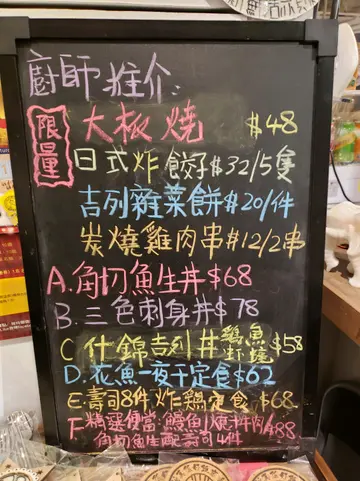 廚師推介:
限量
大板燒 $48
日式炸餃子$32/5隻
吉列雜菜餅$20/件
炭燒雞肉串$12/2串
A.角切魚生丼$68
B.三色刺身丼$78
C 什錦吉列丼 雞魚蝦 $58
D.花魚一夜干定食$62
E.壽司8件炸鷄定食 $68
F.精選便當:鰻魚/ $88
角切魚生配壽司4件